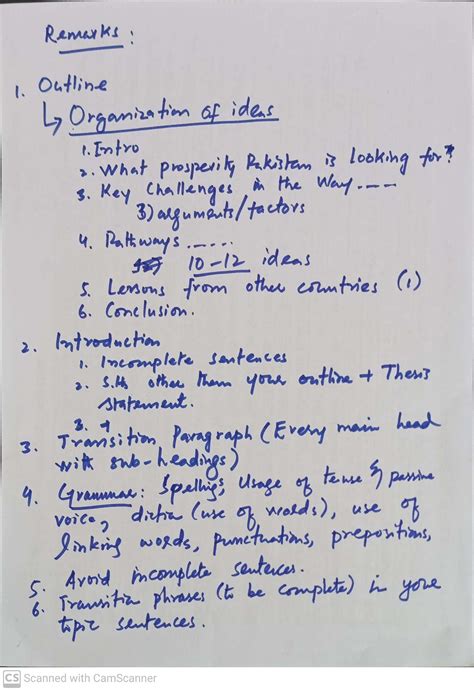 Remarks :
1. Outline
↳ Organization of ideas
1. Intro
2. What prosperity Pakistan is looking for?
3. Key Challenges in the Way ....
3) arguments/factors
4. Pathways .....
10-12 ideas
5. Lessons from other countries (1)
6. Conclusion.
2. Introduction
1. Incomplete sentences
2. S.th other them your outline + Thesis
statement.
3.
3. Transition Paragraph (Every main head
with sub-headings)
4. Grammar: Spellings, Usage of tense & passive
voice, diction (use of words), use of
linking words, punctuations, prepositions,
5. Avoid incomplete sentences.
6. Transition phrases (to be complete) in your
topic sentences.
CS Scanned with CamScanner